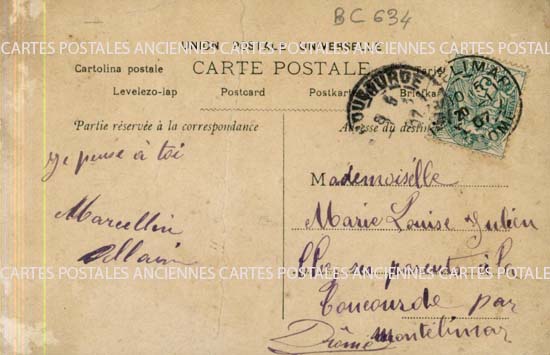 BC 634
UNION POSTALE UNIVERSELLE
CARTES POSTALES ANCIENNES CARTES POSTALES ANCIENNES CARTES POSTALES ANCIENNES
Cartolina postale CARTE POSTALE
Levelezo-lap Postcard Postkarte Briefkaart
Partie réservée à la correspondance
Adresse du destin
je pense à toi
Marcellin
Allain
Mademoiselle
Marie Louise Julien
ses parents à la
CARTES POSTALES ANCIENNES CARTES POSTALES ANCIENNES CARTES POSTALES ANCIENNES
Concourde par
Montélimar
Drôme